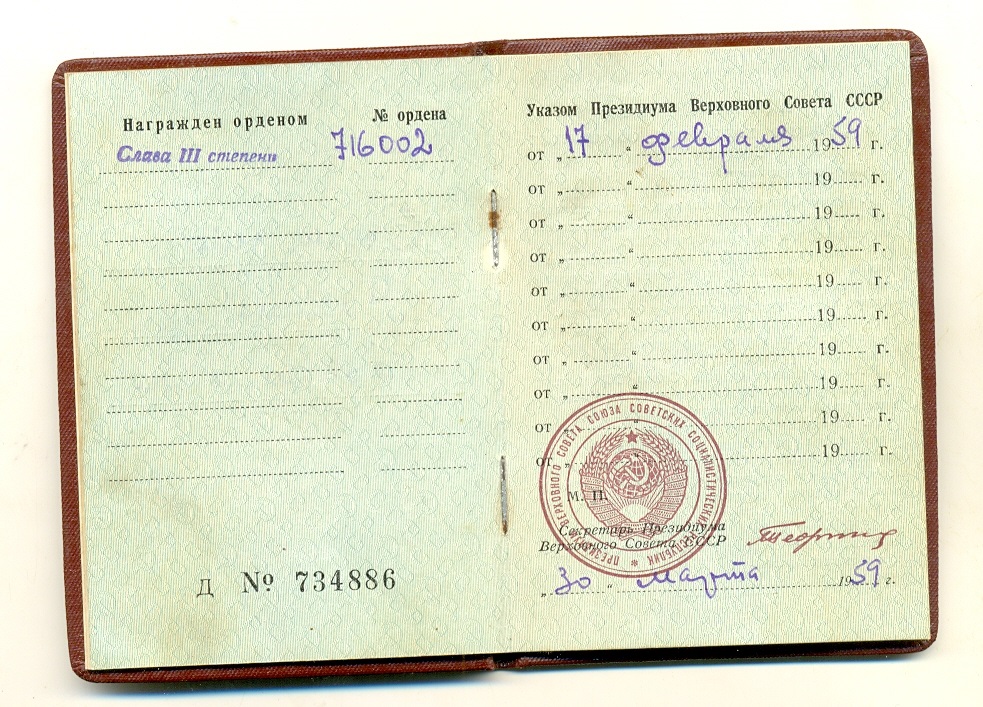 Награжден орденом № ордена
Слава III степени 716002
Д № 734886
Указом Президиума Верховного Совета СССР
от „17“ февраля 1959 г.
от „ “ 19 г.
от „ “ 19 г.
от „ “ 19 г.
от „ “ 19 г.
от „ “ 19 г.
от „ “ 19 г.
от „ “ 19 г.
от „ “ 19 г.
от „ “ 19 г.
ПРЕЗИДИУМ ВЕРХОВНОГО СОВЕТА СОЮЗА СОВЕТСКИХ СОЦИАЛИСТИЧЕСКИХ РЕСПУБЛИК
М. П.
Секретарь Президиума
Верховного Совета СССР
„30“ марта 1959 г.